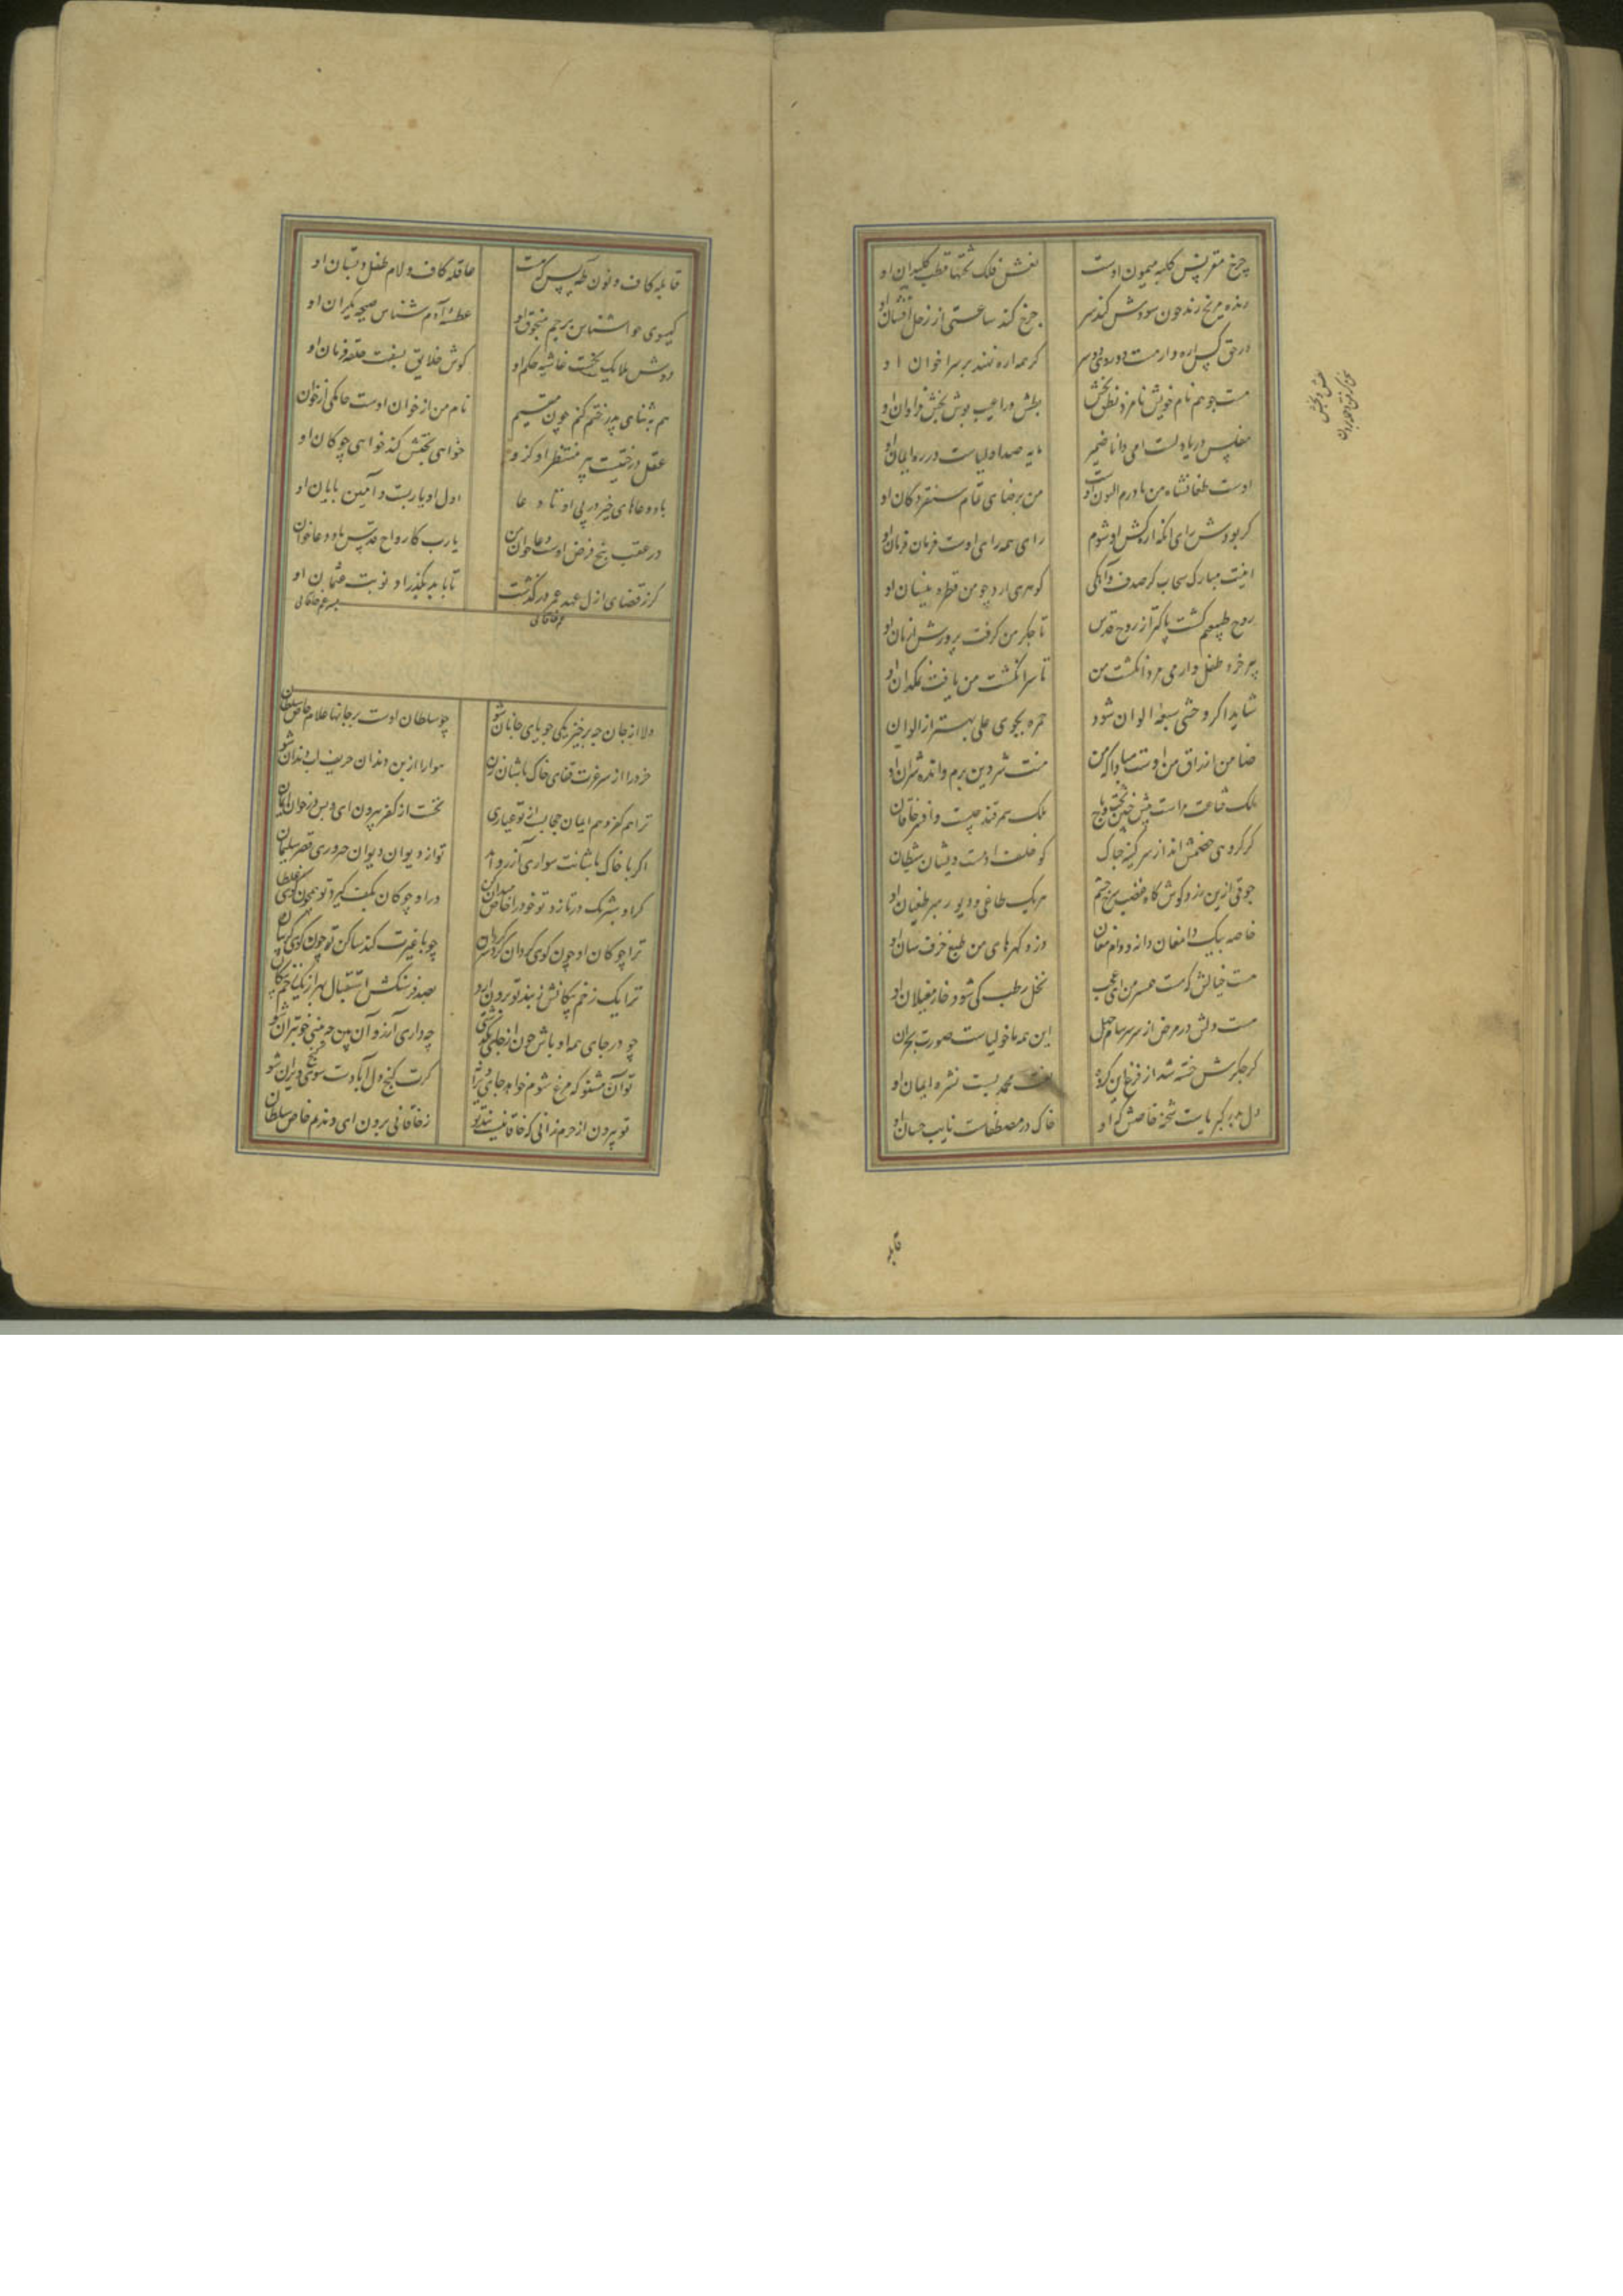 چرخ مقرنس کلبه میمون اوست نعش فلک تختها قطب کلیدان او
رنده مریخ رند چون سودش کند سر چرخ کند ساعتی از زحل افشان او
در حق کس اره وار مست دوروی دو سر گر همه اره نهند بر سر اخوان او
مست جو هم نام خویش نامزد نطق بخش بطش ورا عیب پوش بخش فراوان او
مفلس دریا دلست امی دانا ضمیر مایه صد اولیاست در ره ایمان او
اوست طغانشاه من مادرم الپون اوست من برضای تمام سنقر دکان او
کر بودش رای آنکه ارکش او شوم رای همه رای اوست فرمان فرمان او
اینت مبارک سحاب کز صدف آنکی گوهری ارد چو من قطره نیسان او
روح طبیعیم گشت پاکتر از روح قدس تا جگر من گرفت پرورش از نان او
پیر خرد طفل وار می مزد انگشت من تا سر انگشت من یافت نمکدان او
شاید اگر وحشی سبعه الوان شود حمزه بجوی علی بهتر از الوان
ضامن ارزاق من اوست مبادا که من منت شروین برم وانده شران او
ملک قناعت مراست پیش چنین تخت و تاج ملک سمرقند چیست وافسر خاقان
کر کروی خصمش اند از سر کینه چه باک کو خلف آدمست ویشان شیطان
جوقی ازین زرد گوش گاه غضب سرخ چشم هر یک طاغی و دیو رهبر طغیان او
خاصه بیک دامغان دانه و دام مغان دزد گهرهای من طبع خزف سان او
هست خیالش که هست همسر من ای عجب نخل رطب کی شود خار مغیلان او
هست دلش در مرض از سر سرسام جهل این همه ماخولیاست صورت بحران
گر جگرش خسته شد از فزع این گروه نعت محمد بست نشره ایمان او
دل بدبر کبریاست شحنه خاصش گر او خاک در مصطفاست نایب حسان او
قابله
قابله کاف و نون طه و یس که هست عاقله کاف و لام طفل دبستان او
گیسوی حوا شناس پرچم منجوق او عطسه آدم شناس صیحه یکران او
دوش ملایک بخست غاشیه حکم او گوش خلایق بسفت حلقه فرمان او
هم به ثنای پدر ختم کنم چون مقیم نام من از خوان اوست جامگی از خوان
عقل درختیست پیر منتظر او کزو خواهی تختش کند خواهی چوگان او
باد دعاهای خیر در پی او تا دعا اول او یاربست و آمین پایان او
در عقب پنج فرض اوست دعاخوان من یارب کارواح قدس باد دعاخوان
گر ز قضای ازل عهد عمر در گذشت تا بابد مگذراد نوبت عثمان او
دلا از جان چه برخیزد یکی جویای جانان شو چو سلطان اوست بر جانها غلام خاص سلطان
خرد را از سر غیرت قفای خاک باشان زن هوا را از بن دندان حریف آب دندان شو
ترا هم کفر و هم ایمان حجابست از تو عیاری نخست از کفر بیرون آی و پس در خون ایمان
اگر با خاک باشانت سواری آرزو آمد تو از دیوان دیوان جه وروی قصر سلیمان
گر او شبرنگ در تازد تو خود را خاص میدان کن ور او چوگان بکف گیرد تو همچون گوی غلطان
ترا چوگان او چون گوی گردان کرد سرگردان چو با غیرت کند ساکن تو چون گوی گریبان
ترا یک زخم پیکانش ز بند تو برون آرد بصد فرسنگش استقبال بهر از یک زخم پیکان
چو در جای همه او باش چون از جای بگذشتی چه داری آرزو آن بین چه بینی خوبتر آن شو
تو آن مشنو که مرغ شوم خواهد جای ویرانرا گرت گنج دل آبادست سوی گنج ویران شو
تو بیرون از حرم زانی که خاقانیست بند تو ز خاقانی برون آی و ندیم خاص سلطان